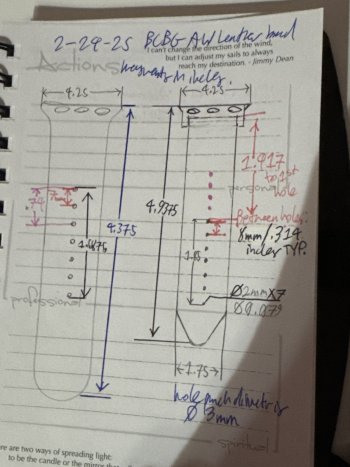 2-29-25 BCBG AW Leather band
"I can't change the direction of the wind,
but I can adjust my sails to always
reach my destination. - Jimmy Dean
Actions
in inches.
4.25
4.25
1.917
to 1st
hole
personal
4.9375
9.375
Between holes:
8mm/.314
inches TYP.
Ø2mmX7
Ø0.079
professional
1.75
hole punch diameter
Ø 3mm
spiritual
ere are two ways of spreading light:
to be the candle or the mirror